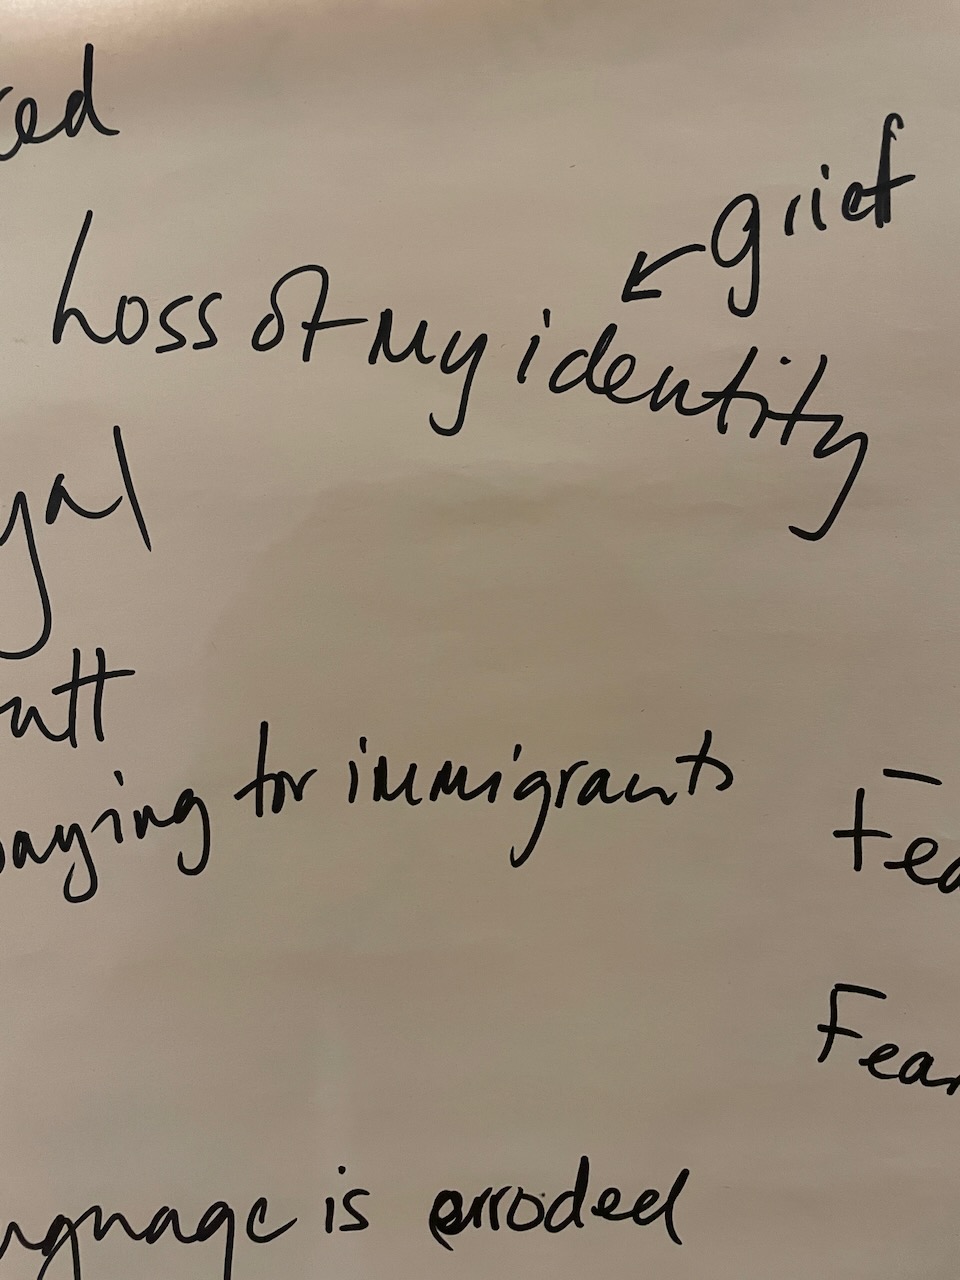 grief
Loss of my identity
paying for immigrants
Fear
language is erroded